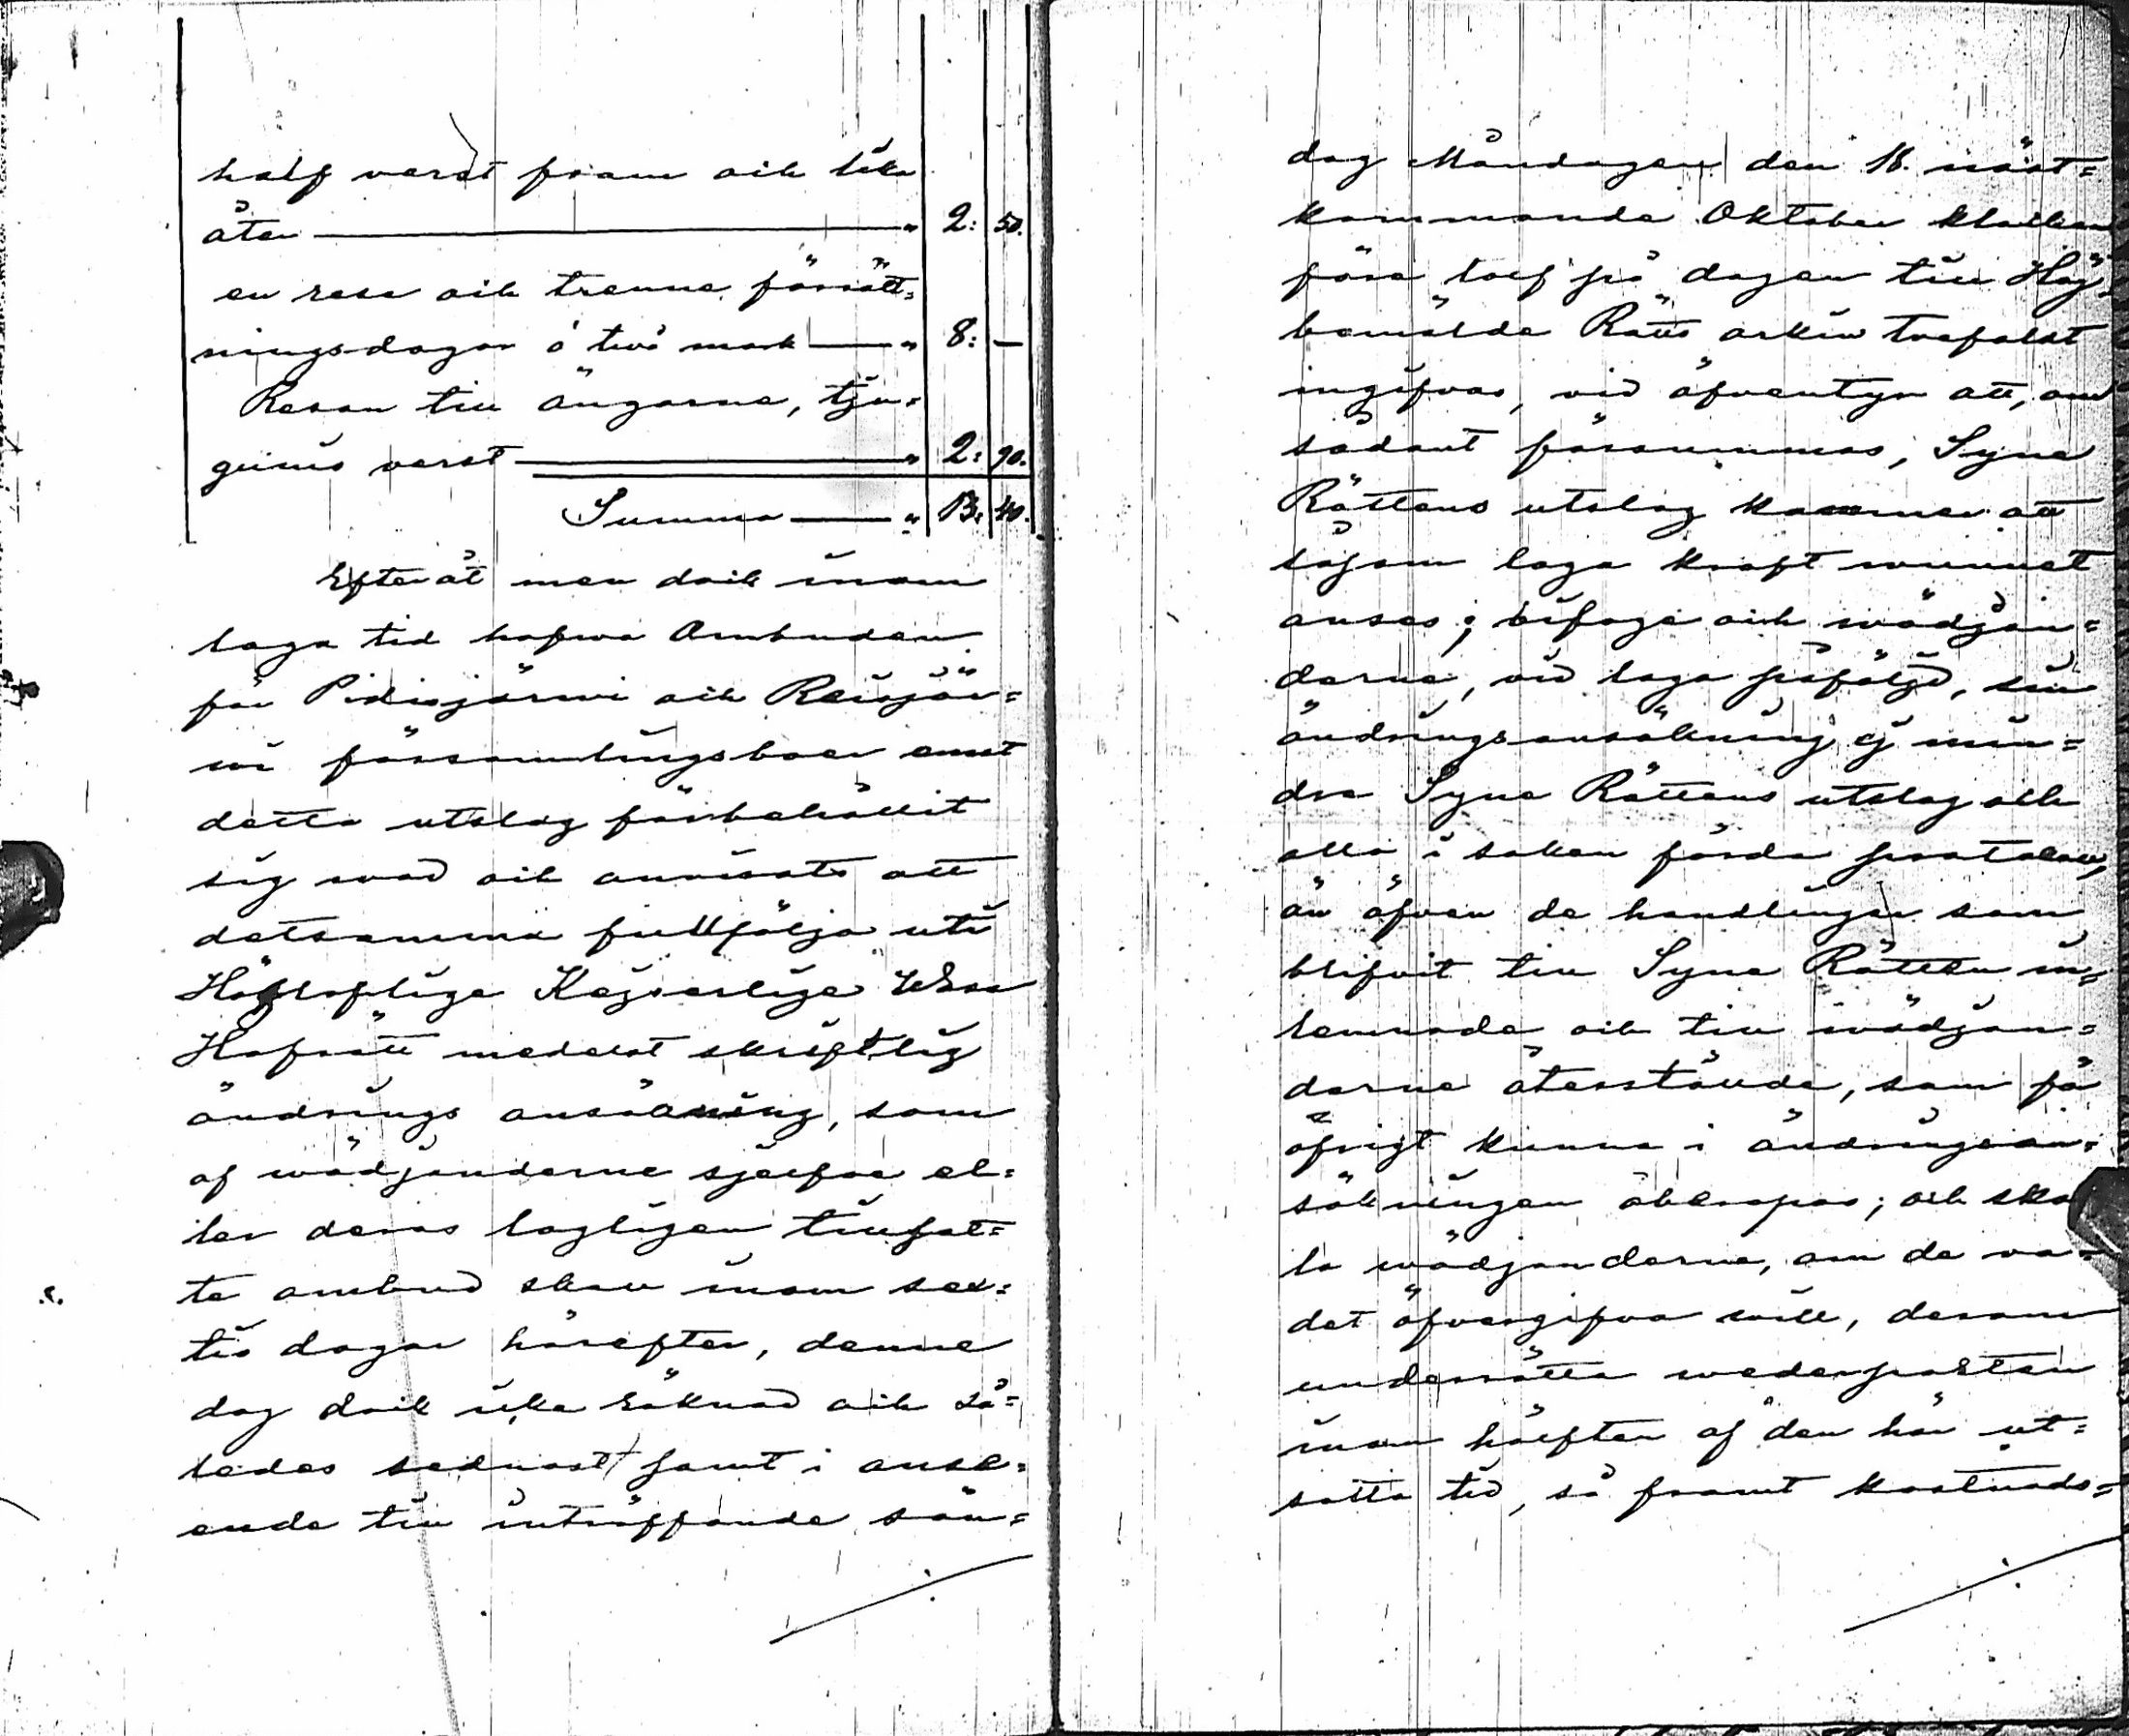 half verst fram och lika
åter — " 2: 50.
en resa och trenne förrätt=
ningsdagar á två mark — " 8: —
Resan till ängarne, tju=
gunio verst — " 2: 90.
Summa — " 13: 40.
Efteråt men dock inom
laga tid hafwa Ombuden
för Pidisjärwi och Reisjär=
wi församlingsboer emot
detta utslag förbehållit
sig wad och anvisats att
detsamma fullfölja uti
Höglofliga Kejserliga Wasa
Hofrätt medelst skriftlig
ändrings ansökning, som
af wädjanderne sjelfva el=
ler deras lagligen tillsat=
te ombud skall inom sex=
tio dagar härefter, denne
dag dock icke räknad och så=
ledes sednast samt i anse=
ende till inträffande sön=
dag Måndagen den 18. näst=
kommande Oktober klockan
före tolf på dagen till Hög=
bemälde Rätts arkiv trefalst
ingifvas, vid äfventyr att, om
sådant försummas, Syne
Rättens utslag kommer att
såsom laga kraft wunnet
anses; bifoge ock wädjan=
darne, vid laga påföljd, sin
ändringsansökning ej min=
dre Syne Rättens utslag och
alla i saken förda protokoll,
än äfven de handlingar som
blifvit till Syne Rätten in=
lemnade och till wädjan=
darne återstälde, som för
öfrigt kunna i ändringsan=
sökningen åberopas; och sko=
la wädjanderne, om de va=
det öfvergifva vill, derom
underrätta wederparten
inom hälften af den här ut=
satta tid, så framt kostnads=